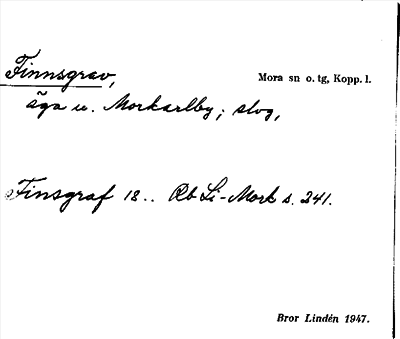 Finnsgrav,
Mora sn o. tg, Kopp. l.
äga u. Morkarlby; skog,
Finsgraf 18.. Rb Li-Mork s. 241.
Bror Lindén 1947.